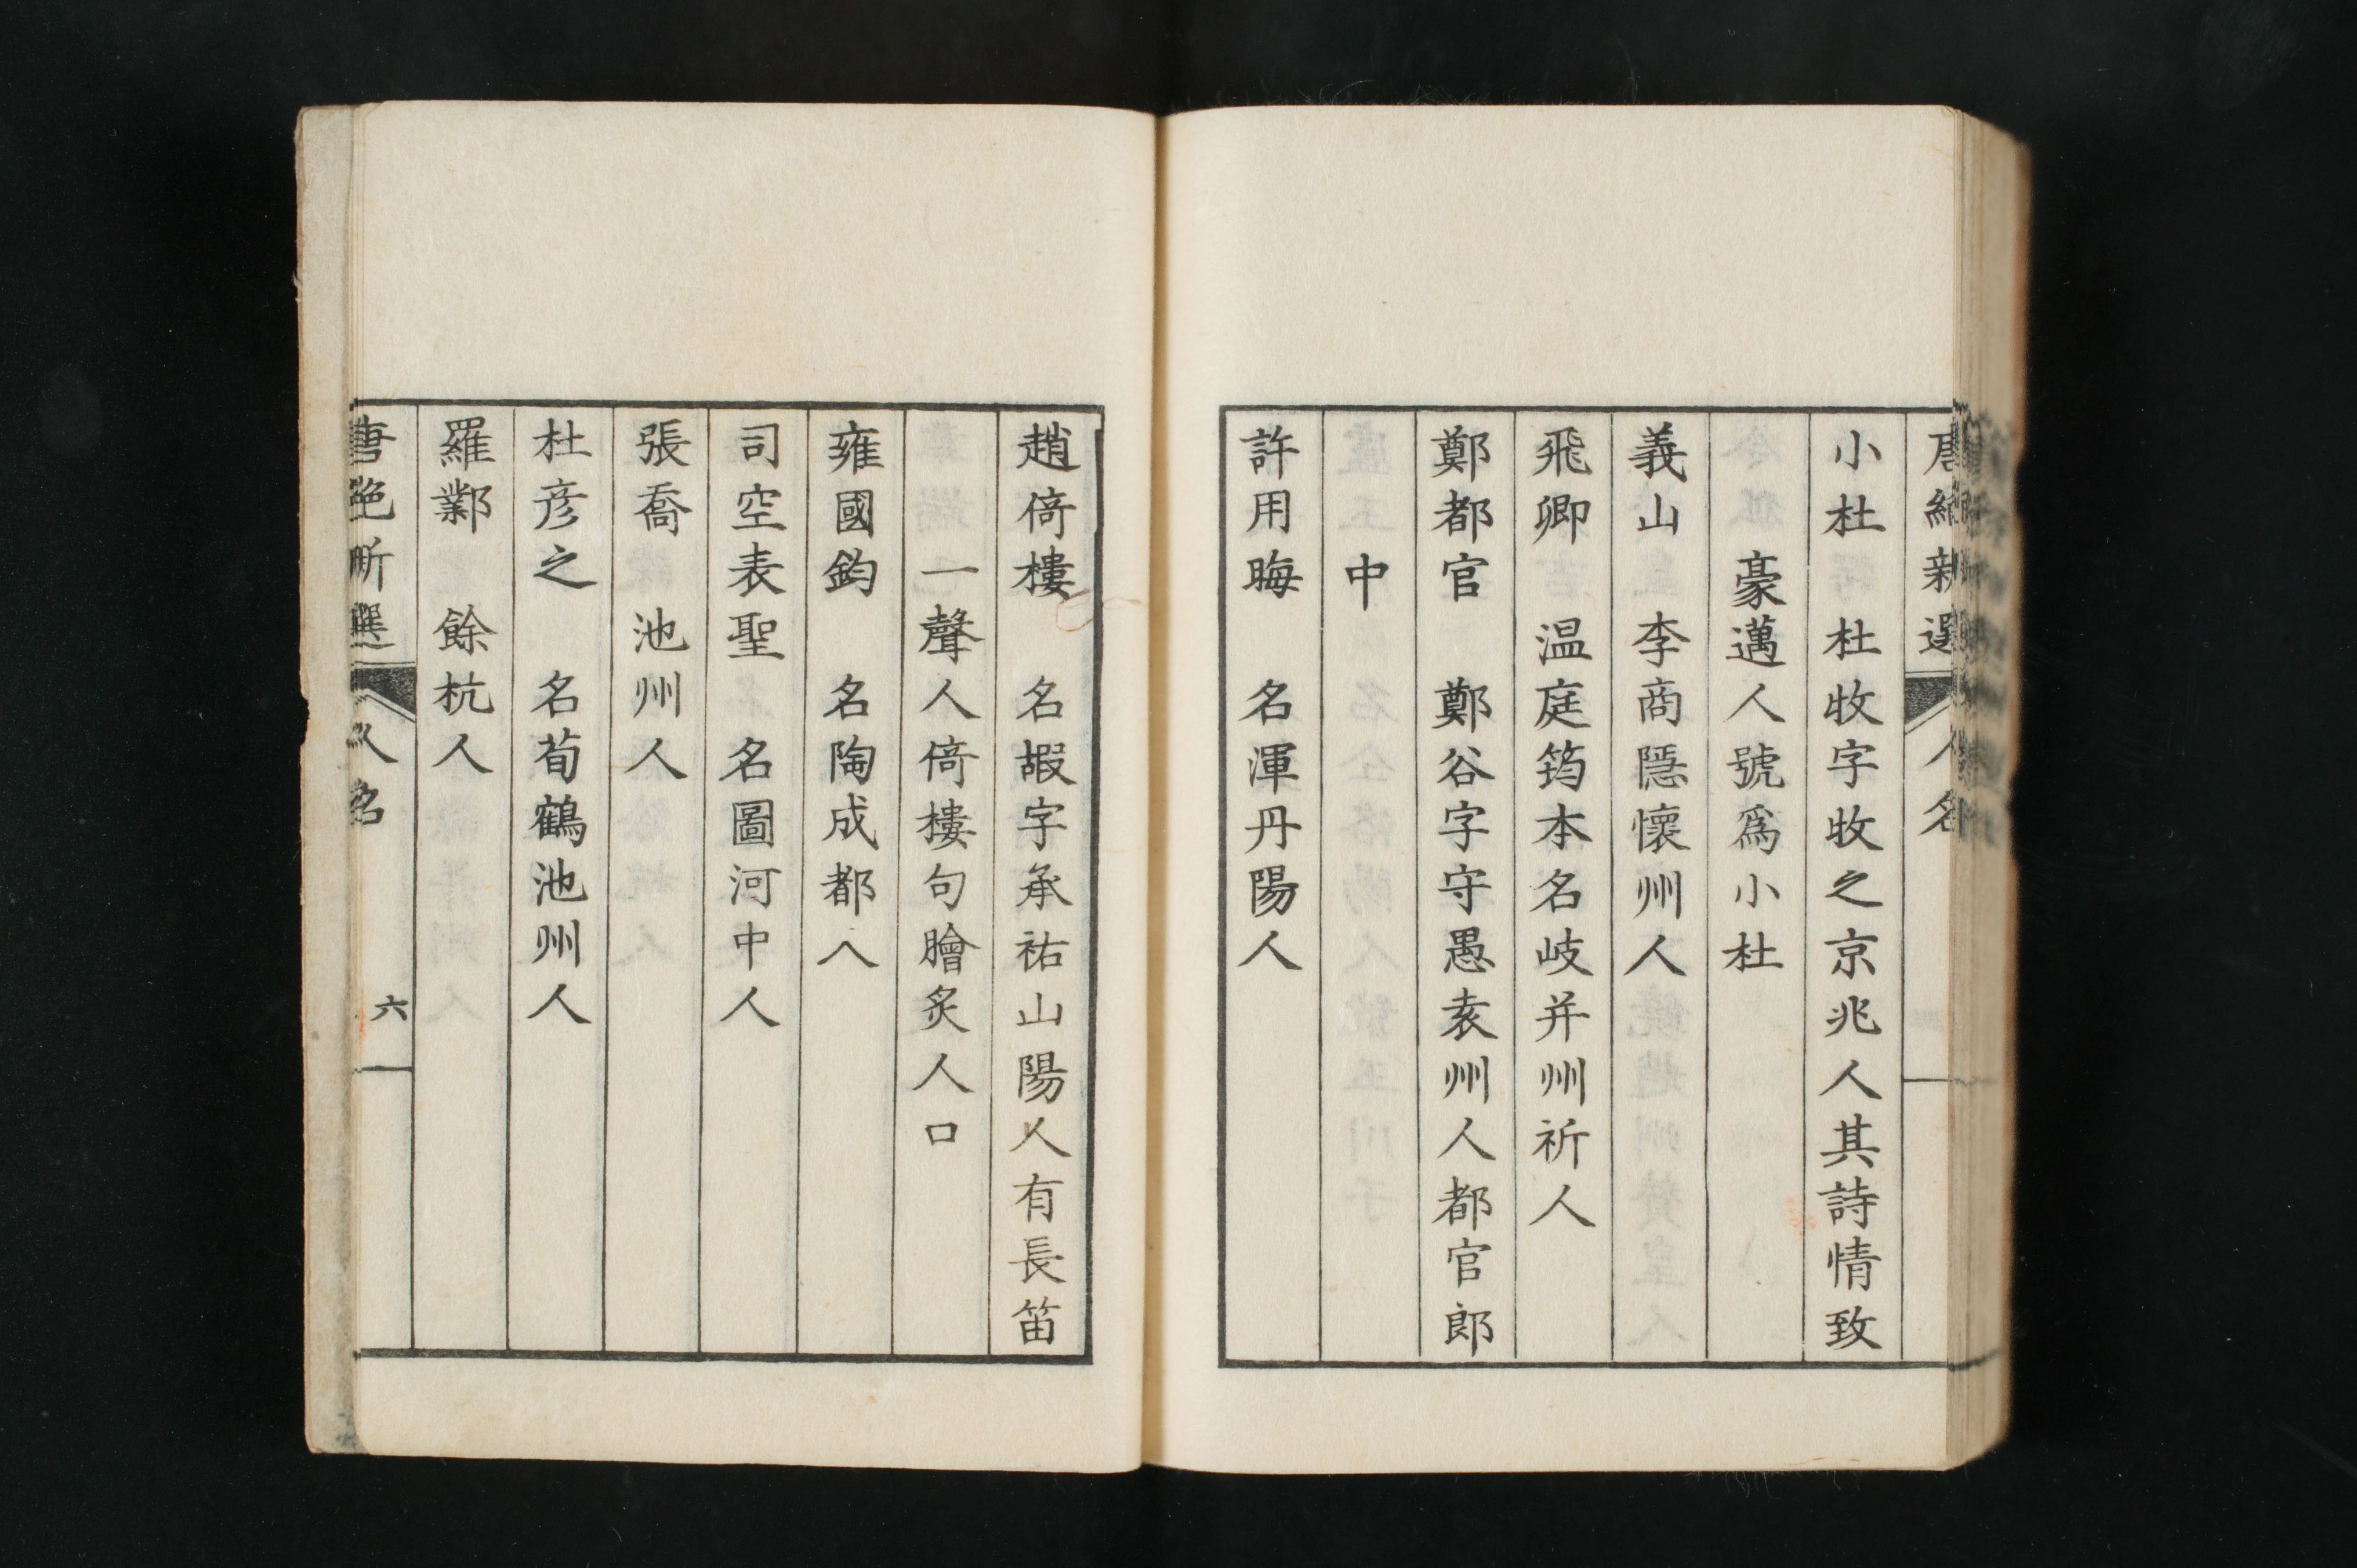 唐絕新選 人名
小杜 杜牧字牧之京兆人其詩情致
豪邁人號爲小杜
義山 李商隱懷州人
飛卿 温庭筠本名岐并州祈人
鄭都官 鄭谷字守愚袁州人都官郎
中
許用晦 名渾丹陽人
趙倚樓 名嘏字承祐山陽人有長笛
一聲人倚樓句膾炙人口
雍國鈞 名陶成都人
司空表聖 名圖河中人
張喬 池州人
杜彦之 名荀鶴池州人
羅鄴 餘杭人
唐絕新選 人名 六